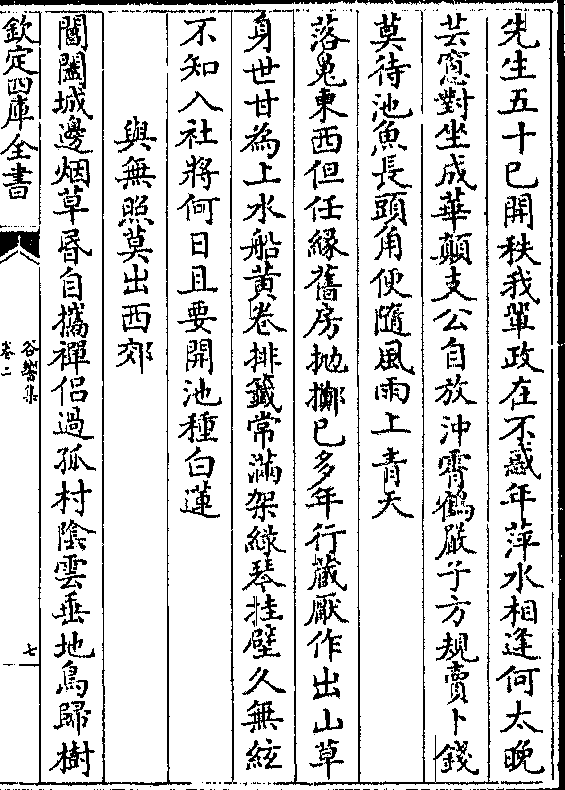 先生五十已開秩我輩政在不惑年萍水相逢何太晚
芸窻對坐成華顛支公自放沖霄鶴嚴子方規賣卜錢
莫待池魚長頭角便隨風雨上青天
落鳬東西但任緣舊房抛擲已多年行藏厭作出山草
身世甘為上水船黄卷排籤常滿架綠琴挂壁久無絃
不知入社將何日且要開池種白蓮
與無照莫出西郊
閶闔城邊烟草昬自攜禪侣過孤村陰雲垂地鳥歸樹
欽定四庫全書
谷響集
卷二
七